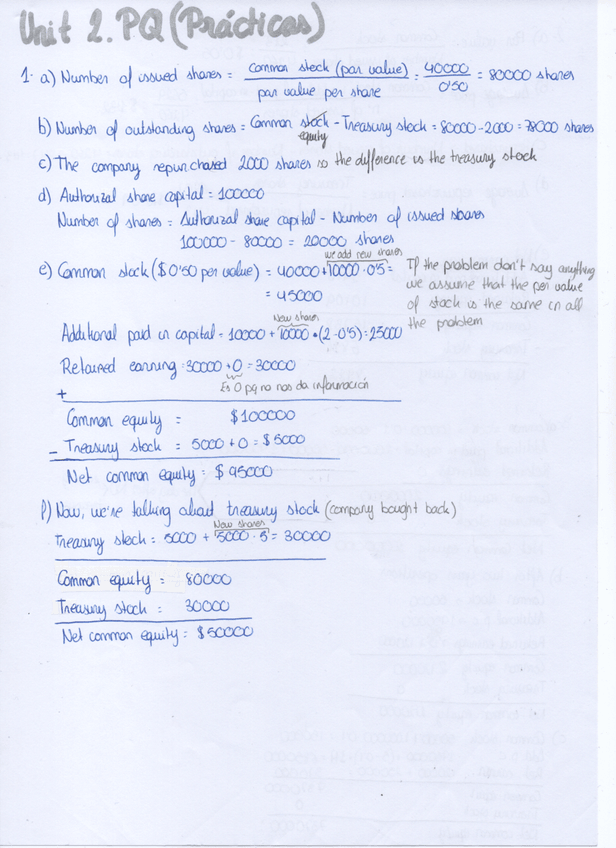 Unit 2. PQ (Prácticas)
1. a) Number of issued shares = Common stock (par value) / par value per share = 40000 / 0'50 = 80000 shares
b) Number of outstanding shares = Common stock equity - Treasury stock = 80000 - 2000 = 78000 shares
c) The company repurchared 2000 shares so the difference is the treasury stock
d) Authorizal share capital = 100000
Number of shares = Authorizal share capital - Number of issued shares
100000 - 80000 = 20000 shares
we add new shares
e) Common stock ($ 0'50 per value) = 40000 + 10000 · 0'5 =
= 45000
If the problem don't say anything
we assume that the per value
of stock is the same in all
the problem
New shares
Additional paid in capital = 10000 + 10000 · (2 - 0'5) = 25000
Retained earning = 30000 + 0 = 30000
+
Es 0 pq no nos da información
Common equity = $ 100000
- Treasury stock = 5000 + 0 = $ 5000
Net common equity = $ 95000
f) Now, we're talking about treasury stock (company bought back)
New shares
Treasury stock = 5000 + 5000 · 5 = 30000
Common equity = 80000
Treasury stock = 30000
Net common equity = $ 50000